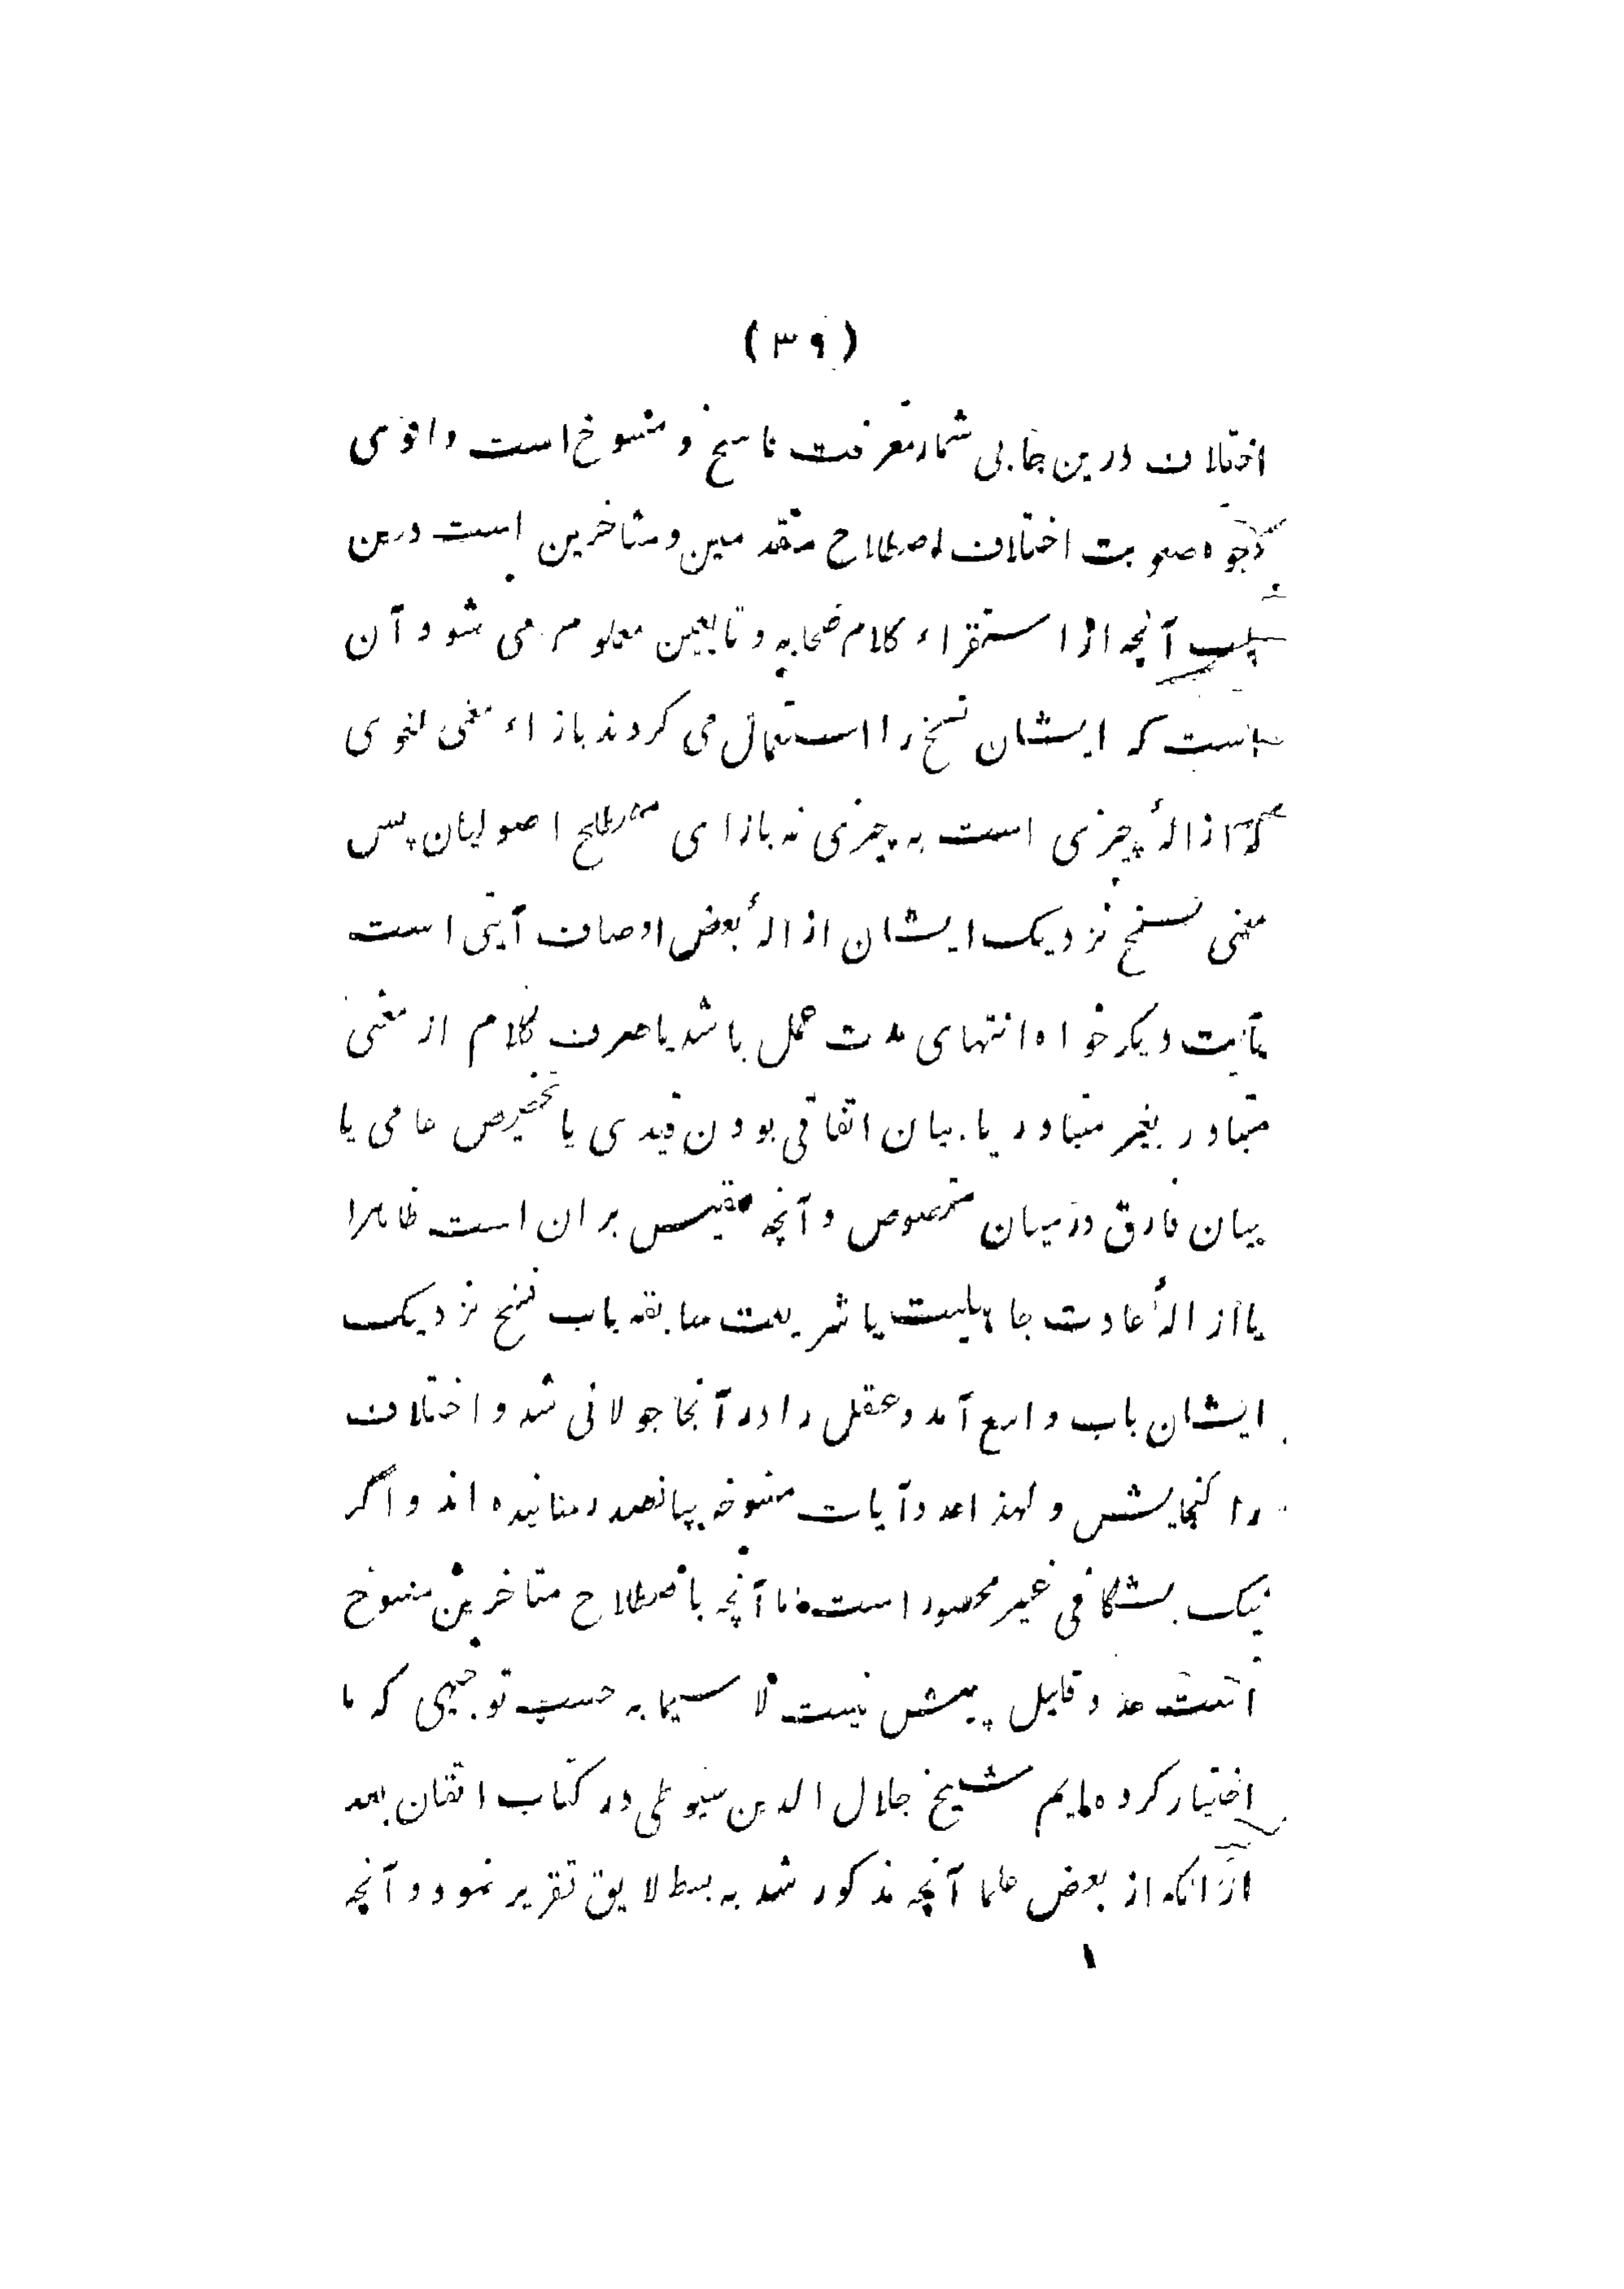 (٣٩)
اختلاف درین جا بی شمار معرفت ناسخ و منسوخ است و اقوی
وجوه صعوبت اختلاف اصطلاح متقدمین و متاخرین است درین
باب آنچه از استقراء کلام صحابه و تابعین معلوم می شود آن
است که ایشان نسخ را استعمال می کردند بازاء معنی لغوی
که ازالهٔ چیزی است به چیزی نه بازای مصطلح اصولیان پس
معنی نسخ نزدیک ایشان ازالهٔ بعض اوصاف آیتی است
بآیت دیگر خواه انتهای مدت عمل باشد یا صرف کلام از معنی
متبادر بغیر متبادر یا بیان اتفاقی بودن قیدی یا تخصیص عامی یا
بیان فارق درمیان منصوص و آنچه مقیس بران است ظاهرا
یا ازالهٔ عادت جاهلیت یا شریعت سابقه باب نسخ نزدیک
ایشان باب واسع آمد و عقل را در آنجا جولانی شد و اختلاف
را گنجایشی و لهذا عدد آیات منسوخه بپانصد رسانیده اند و اگر
نیک بشگافی غیر محصور است اما آنچه باصطلاح متاخرین منسوخ
است عدد قلیل بیش نیست لا سیما به حسب توجیهی که ما
اختیار کرده ایم شیخ جلال الدین سیوطی در کتاب اتقان بعد
ازانکه از بعض علما آنچه مذکور شد به بسط لایق تقریر نمود و آنچه
۱